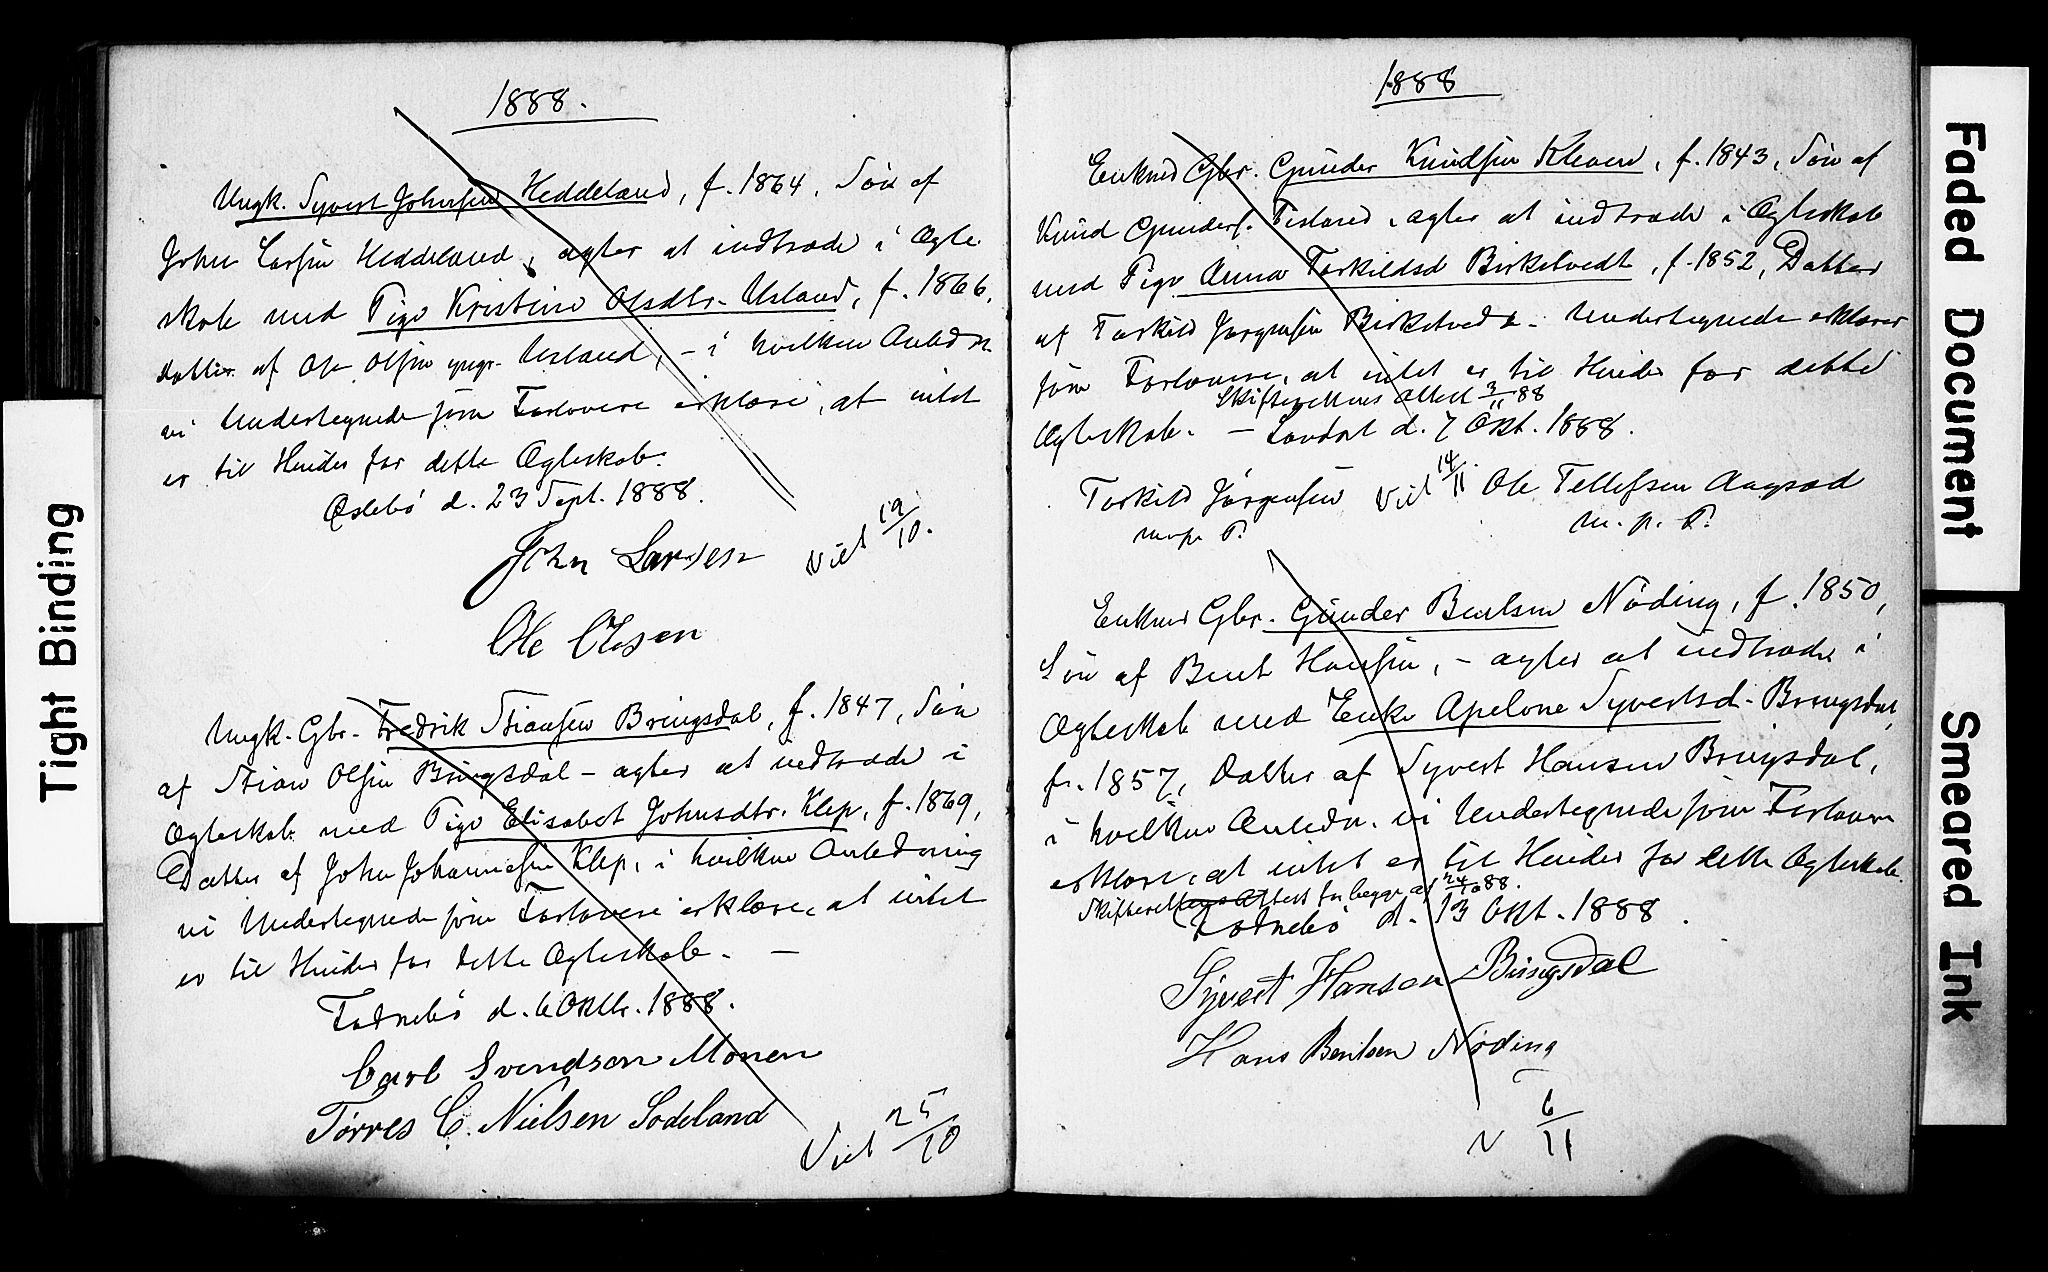 1888.
Ungk. Syvert Johnsen Heddeland, f. 1864, Søn af
John Larsen Heddeland, agter at indtræde i Ægte
skab med Pige Kristine Olsdtr. Usland, f. 1866,
datter af Ole Olsen yngr. Usland, - i hvilken Anledn.
vi Undertegnede som Forlovere erklære, at intet
er til Hinder for dette Ægteskab.
Øslebø d. 23 Sept. 1888.
John Larsen
Viet 19/10.
Ole Olsen
Ungk. Gbr. Fredrik Stiansen Bringsdal, f. 1847, Søn
af Stian Olsen Bringsdal - agter at indtræde i
Ægteskab med Pige Elisabet Johnsdtr. Klep, f. 1869,
Datter af John Johannesen Klep, i hvilken Anledning
vi Undertegnede som Forlovere erklære, at intet
er til Hinder for dette Ægteskab. -
Lodnebø d. 6 Oktb. 1888.
Carl Svendsen Monen
Tørres C. Nielsen Sodeland
Viet 25/10
1888
Enkmd Gbr. Gunder Knudsen Kleven, f. 1843, Søn af
Knud Gunders. Fesland, agter at indtræde i Ægteskab
med Pige Anna Torkildsd Birkelvedt, f. 1852, Datter
af Torkild Jørgensen Birketvedt. Undertegnede erklærer
som Forlovere, at intet er til Hinder for dette
Skifterettens Attest 3/11 88
Ægteskab. - Løvdal d. 7 Okt. 1888.
Torkild Jørgensen Viet 14/11. Ole Tellefsen Aagsæd
m. p. P. m. p. P.
Enkmd Gbr. Gunder Bentsen Nøding, f. 1850,
Søn af Bent Hansen, - agter at indtræde i
Ægteskab med Enke Apelone Syvertsd. Bringsdal,
f. 1857, Datter af Syvert Hansen Bringsdal,
i hvilken Anledn. vi Undertegnede som Forlovere
erklære, at intet er til Hinder for dette Ægteskab.
Skifterettens Attest for begge af 24/10 88.
Lodnebø d. 13 Okt. 1888.
Syvert Hansen Bringsdal
Hans Bentsen Nøding
V 6/11
Tight Binding
Faded Document
Smeared Ink